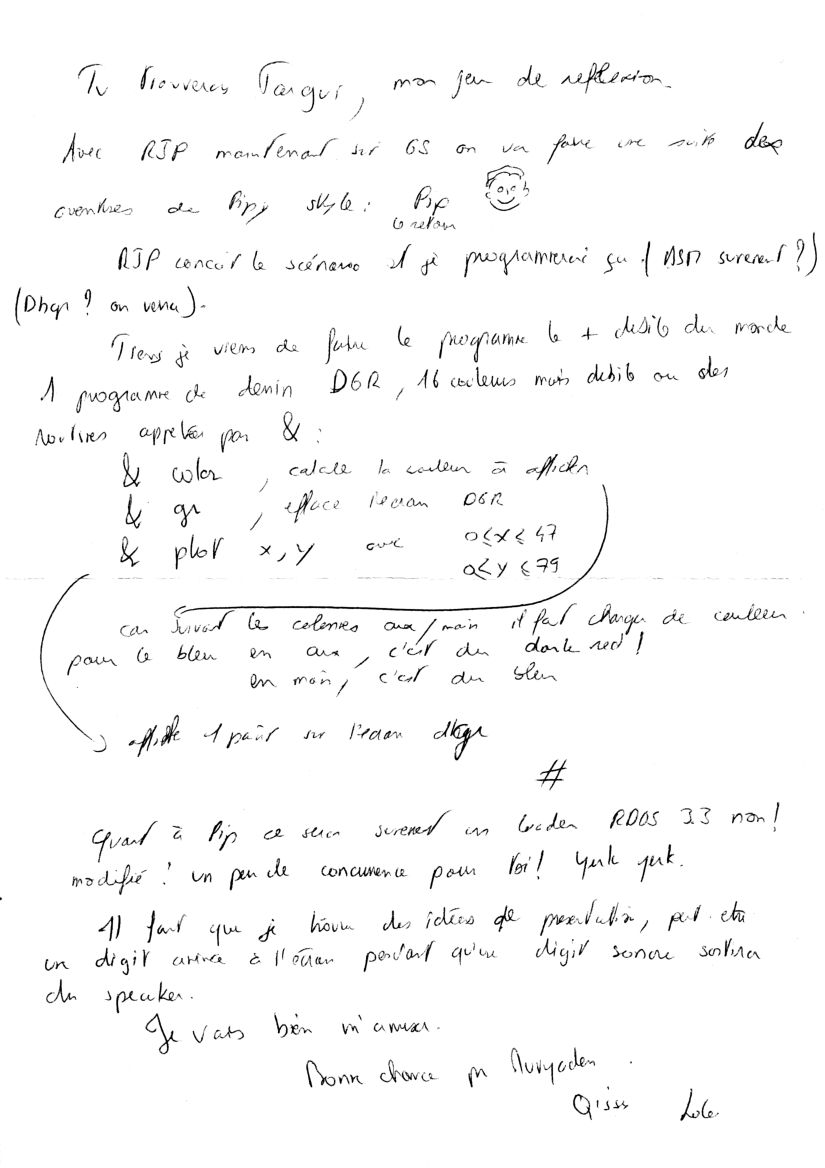 Tu trouveras Targui, mon jeu de reflexion.
Avec RJP maintenant sur GS on va faire une suite des
aventures de Pipy style : Pip
le retour
RJP concoit le scénario et je programmerai ça (ASM surement ?)
(Dhgr ? on verra).
Tiens je viens de faire le programme le + debile du monde
1 programme de dessin DGR, 16 couleurs mais debile ou des
routines appelées par & :
& color , calcule la couleur à afficher
& gr , efface l'ecran DGR
& plot x, y avec 0≤x≤47
0≤y≤79
car suivant les colonnes aux/main il faut changer de couleur.
pour le bleu en aux, c'est du dark red !
en main, c'est du bleu
affiche 1 point sur l'ecran dgr
#
Quant à Pip ce sera surement un loader RDOS 3.3 non !
modifié ! un peu de concurrence pour toi ! Yerk yerk.
Il faut que je trouve des idées de presentation, peut etre
un digit arrive à l'écran pendant qu'un digit sonore sortira
du speaker.
Je vais bien m'amuser.
Bonne chance pr